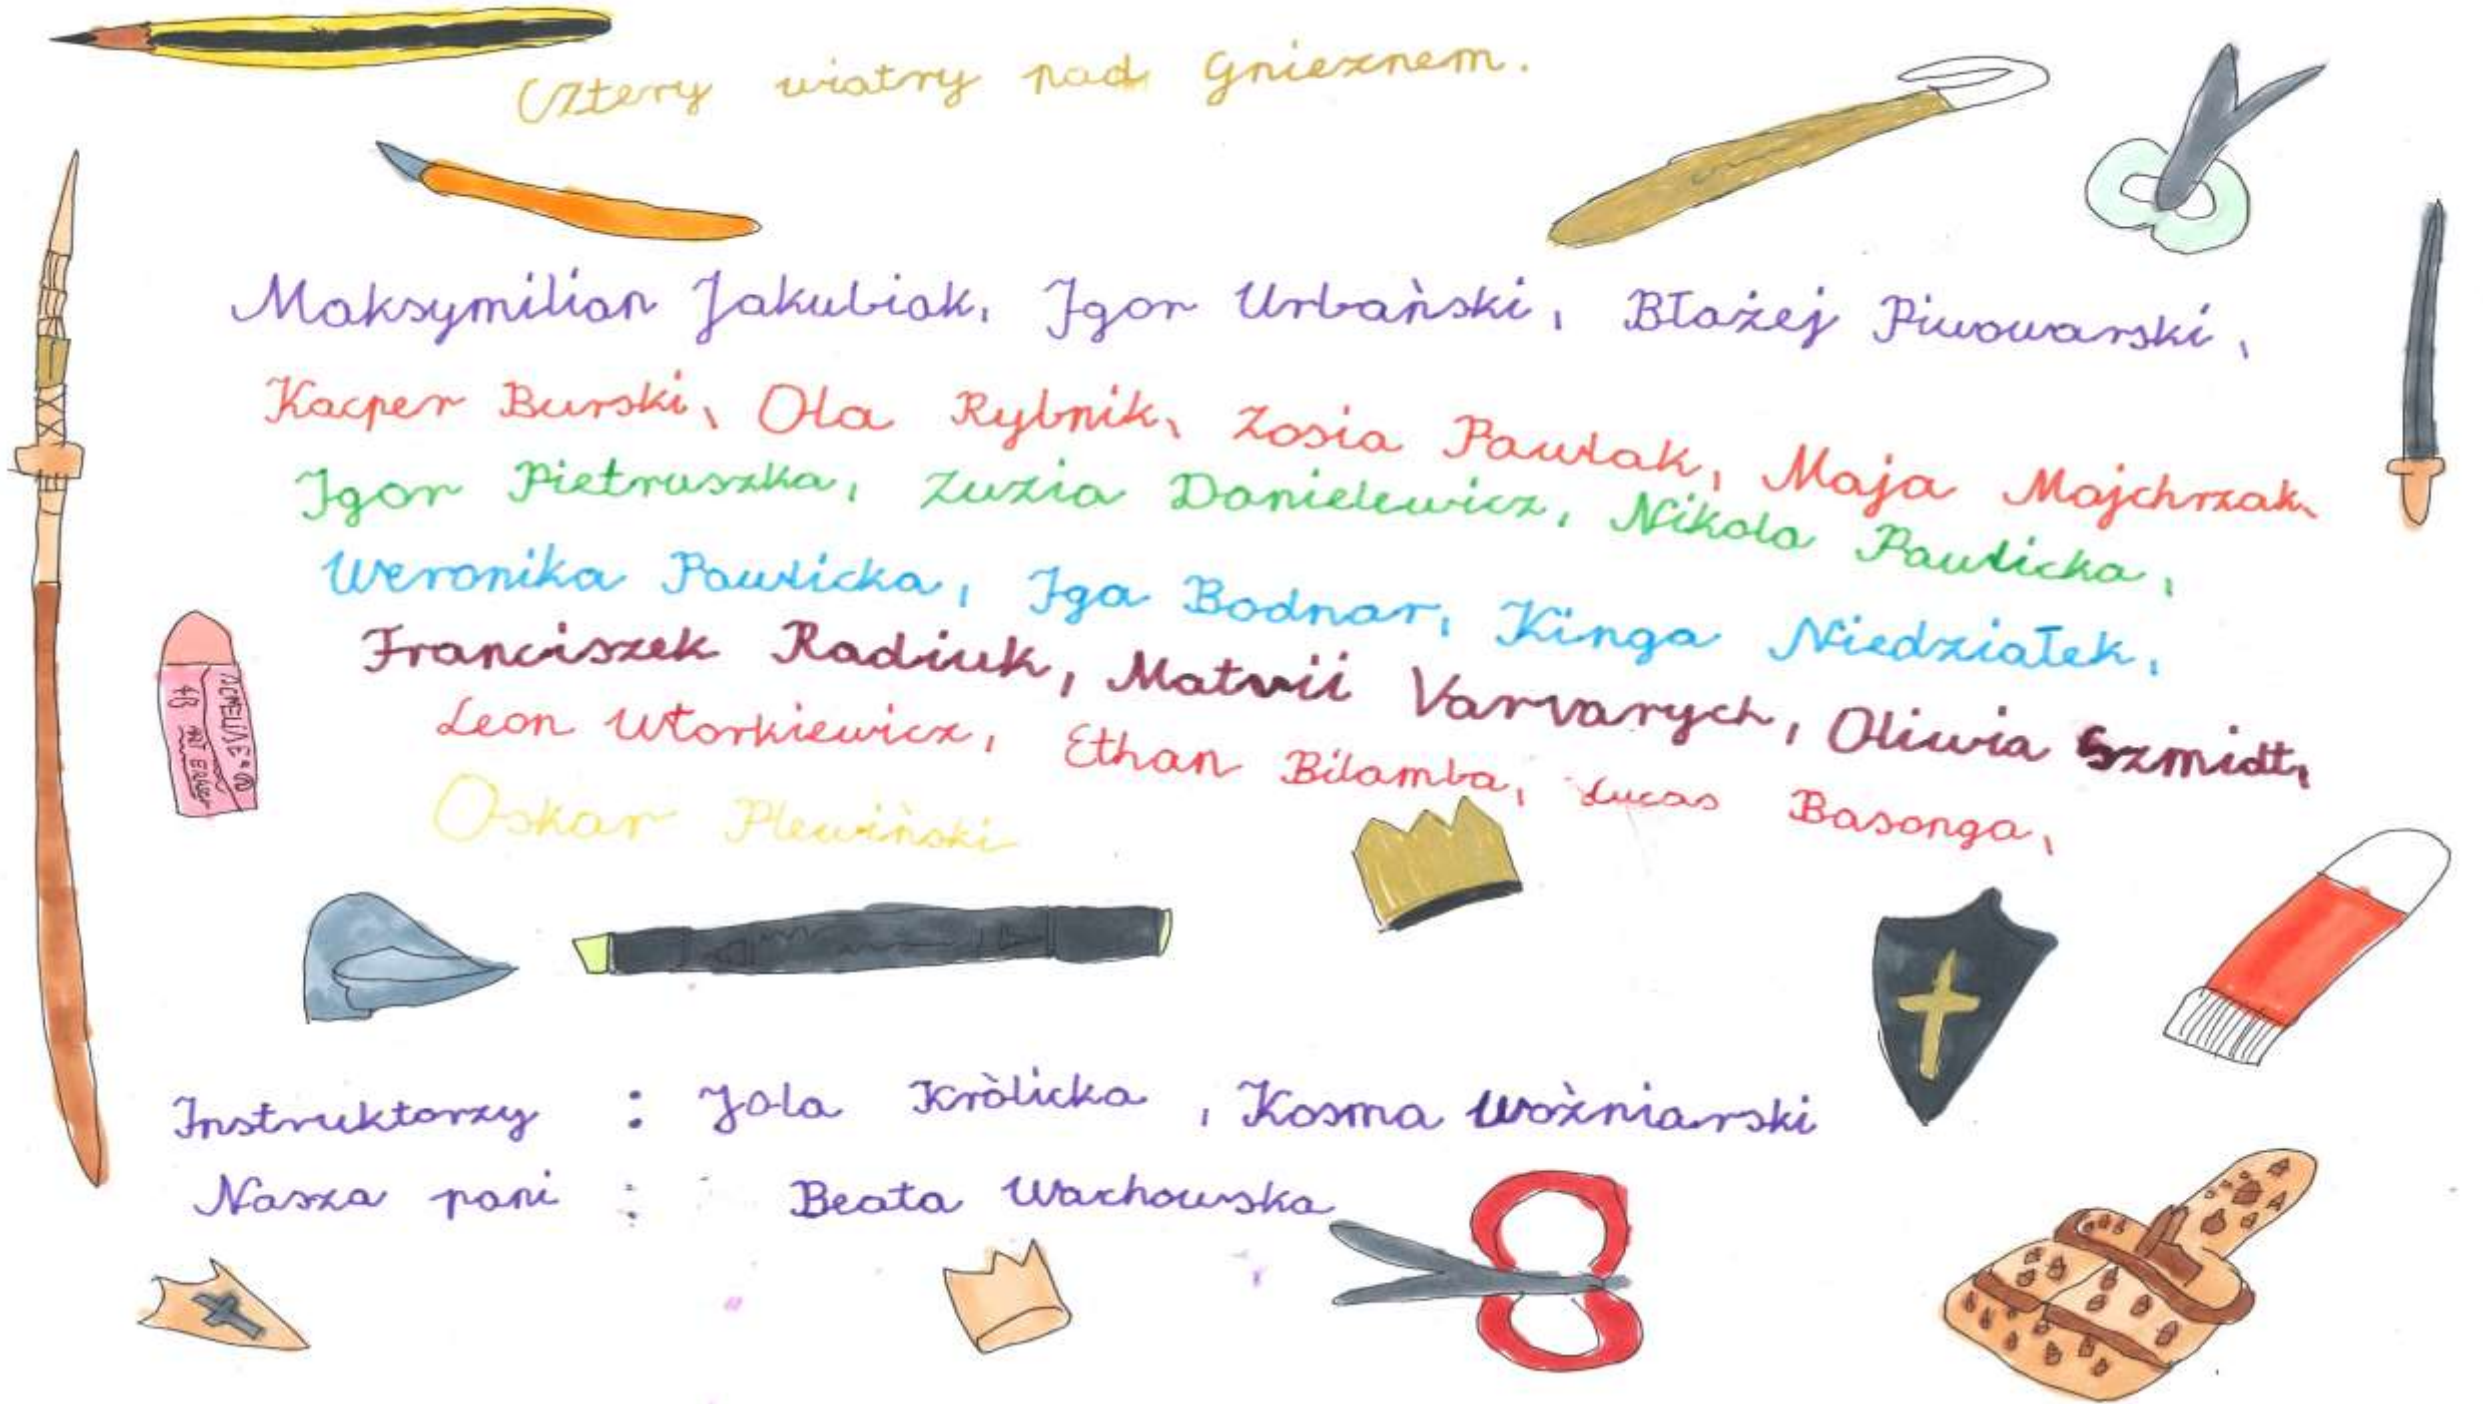 Cztery wiatry nad Gnieznem.
Maksymilian Jakubiak, Igor Urbański, Błażej Piwowarski,
Kacper Burski, Ola Rybnik, Zosia Pawlak, Maja Majchrzak,
Igor Pietruszka, Zuzia Danielewicz, Nikola Pawlicka,
Weronika Pawlicka, Iga Bodnar, Kinga Niedziałek,
Franciszek Radiuk, Matvii Varvarych, Oliwia Szmidt,
Leon Wtorkiewicz, Ethan Bilamba, Lucas Basonga,
Oskar Plewiński
4B ART ERASER
Instruktorzy : Jola Królicka, Kosma Woźniarski
Nasza pani : Beata Wachowska